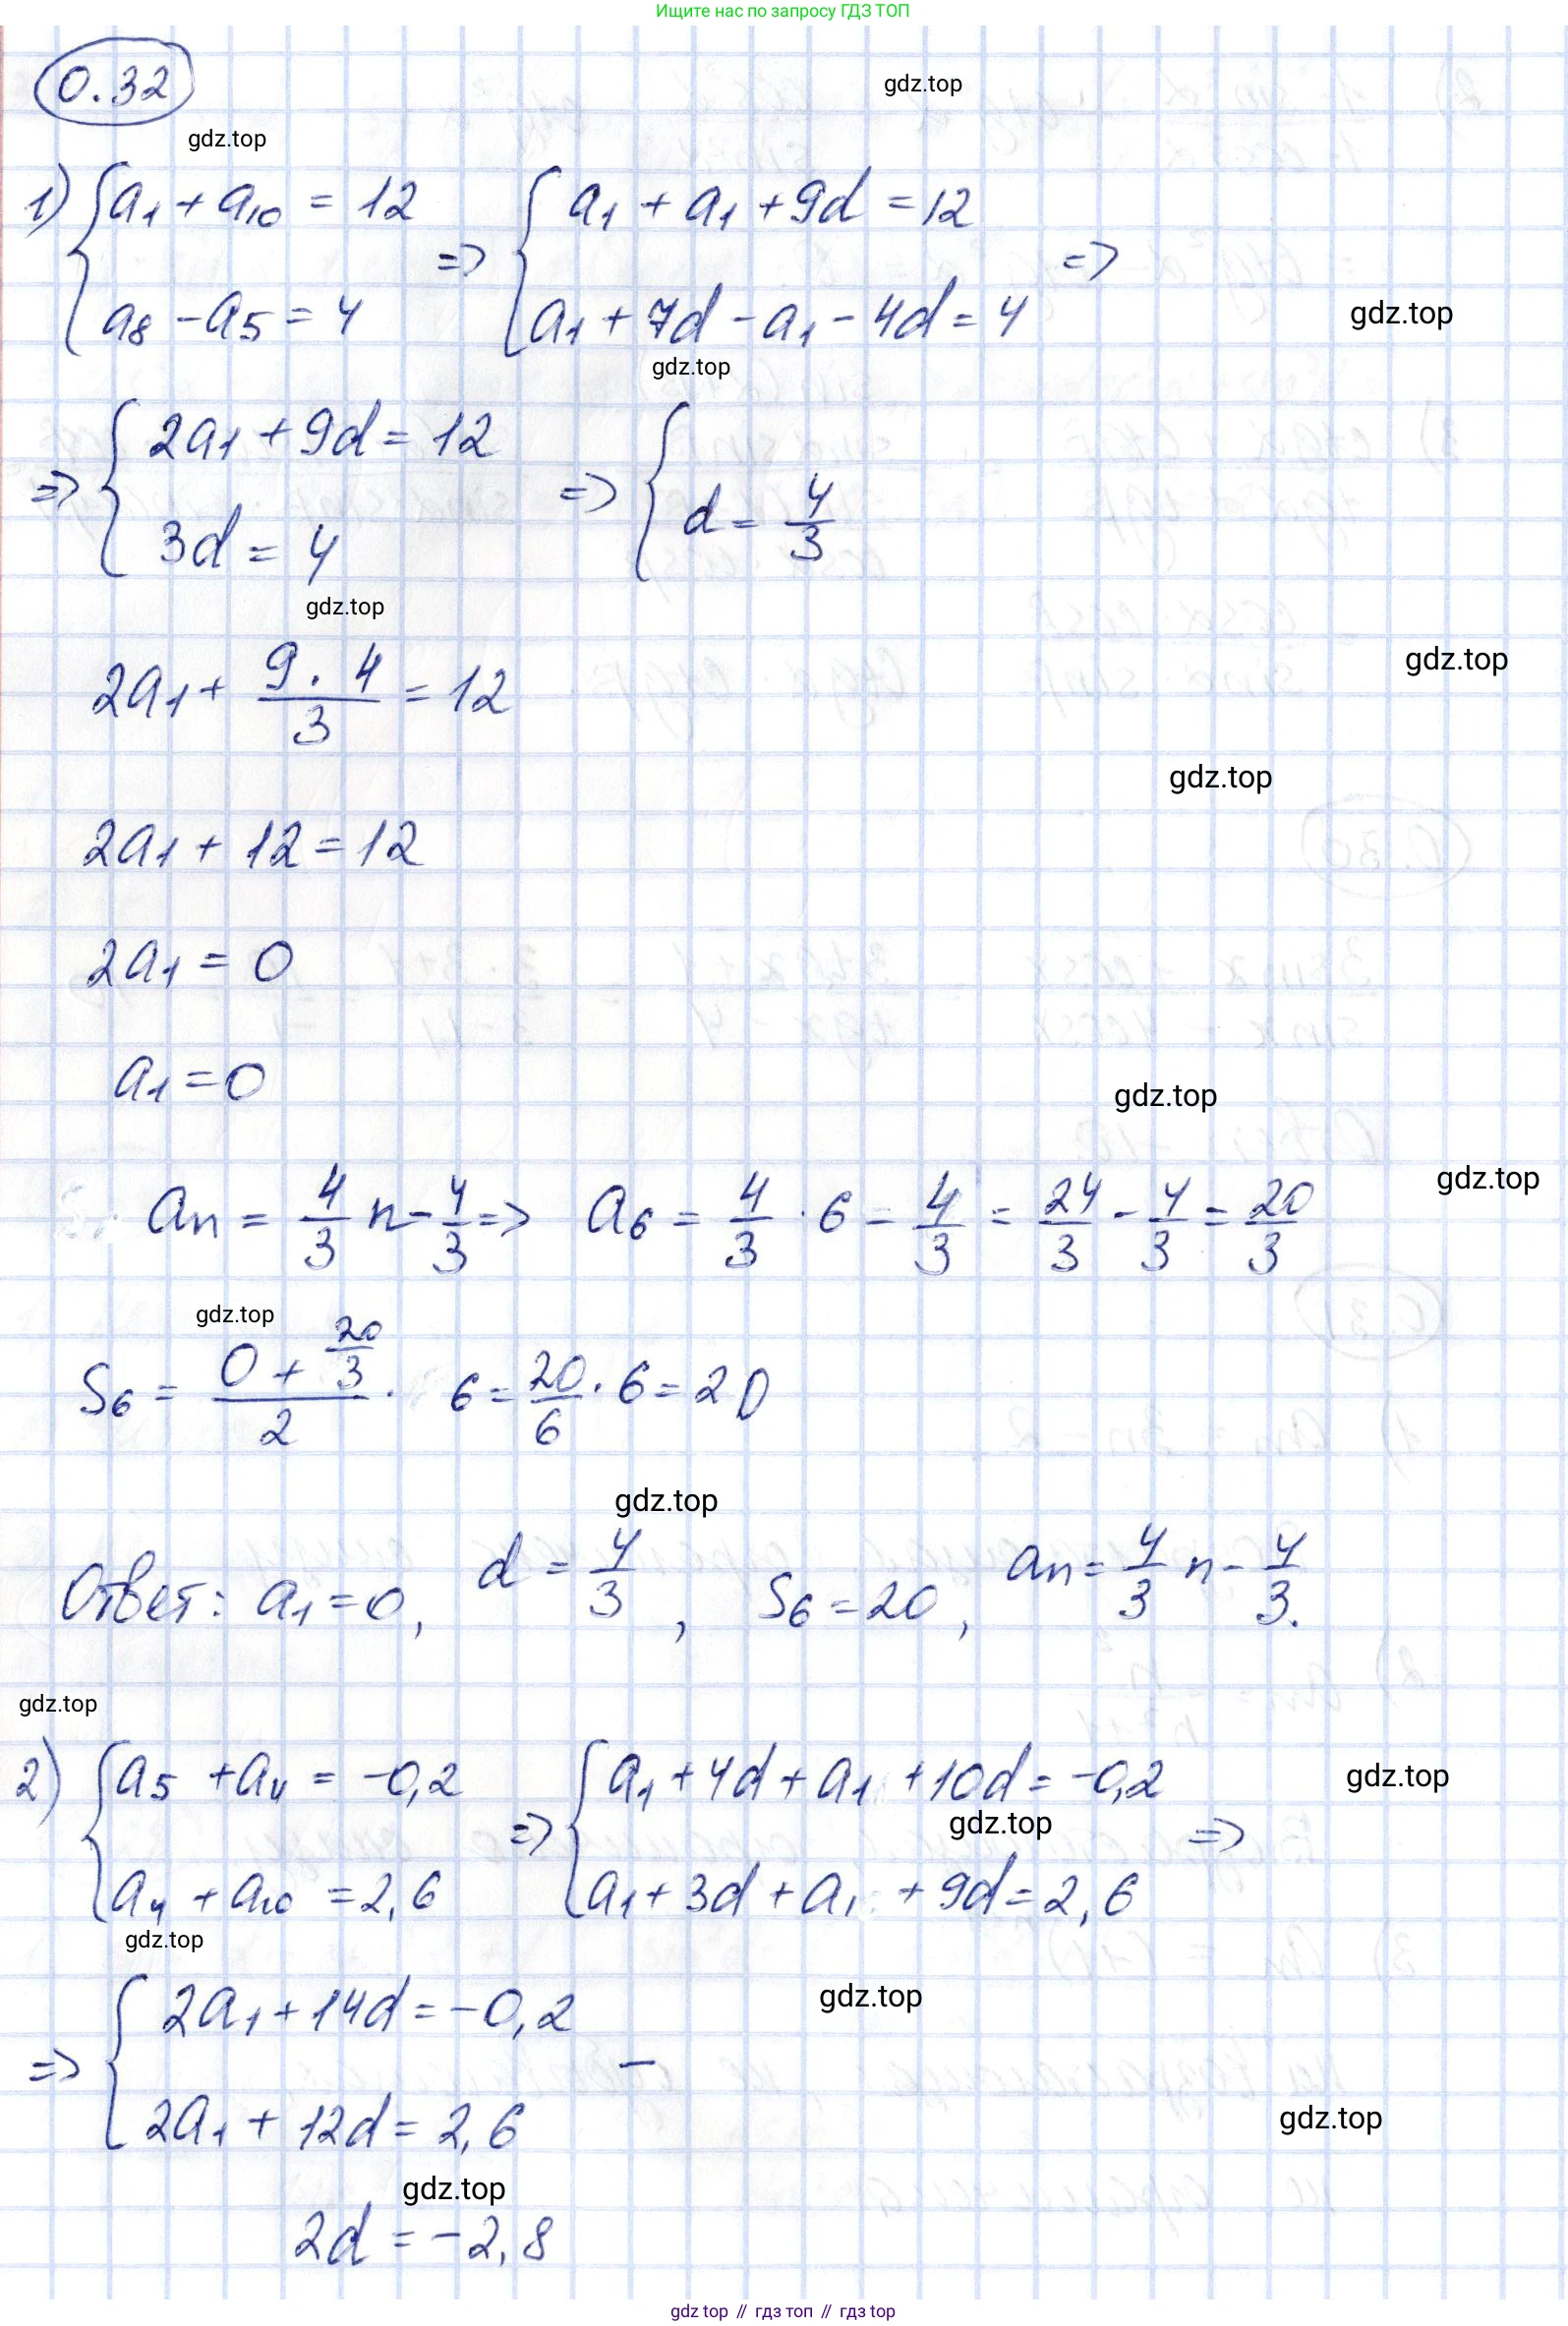 Ищите нас по запросу ГДЗ ТОП
0.32
gdz.top
gdz.top
1) { a₁ + a₁₀ = 12 => { a₁ + a₁ + 9d = 12 =>
a₈ - a₅ = 4 a₁ + 7d - a₁ - 4d = 4
gdz.top
gdz.top
=> { 2a₁ + 9d = 12 => {
3d = 4 d = 4/3
gdz.top
gdz.top
2a₁ + 9 · 4/3 = 12
gdz.top
2a₁ + 12 = 12
2a₁ = 0
a₁ = 0
gdz.top
gdz.top
aₙ = 4/3 n - 4/3 => a₆ = 4/3 · 6 - 4/3 = 24/3 - 4/3 = 20/3
gdz.top
S₆ = (0 + 20/3)/2 · 6 = 20/6 · 6 = 20
gdz.top
Ответ: a₁ = 0, d = 4/3, S₆ = 20, aₙ = 4/3 n - 4/3.
gdz.top
2) { a₅ + a₁₁ = -0,2 => { a₁ + 4d + a₁ + 10d = -0,2 =>
gdz.top
gdz.top
a₄ + a₁₀ = 2,6 a₁ + 3d + a₁ + 9d = 2,6
gdz.top
gdz.top
=> { 2a₁ + 14d = -0,2 -
2a₁ + 12d = 2,6
gdz.top
gdz.top
2d = -2,8
gdz top // гдз топ // гдз top